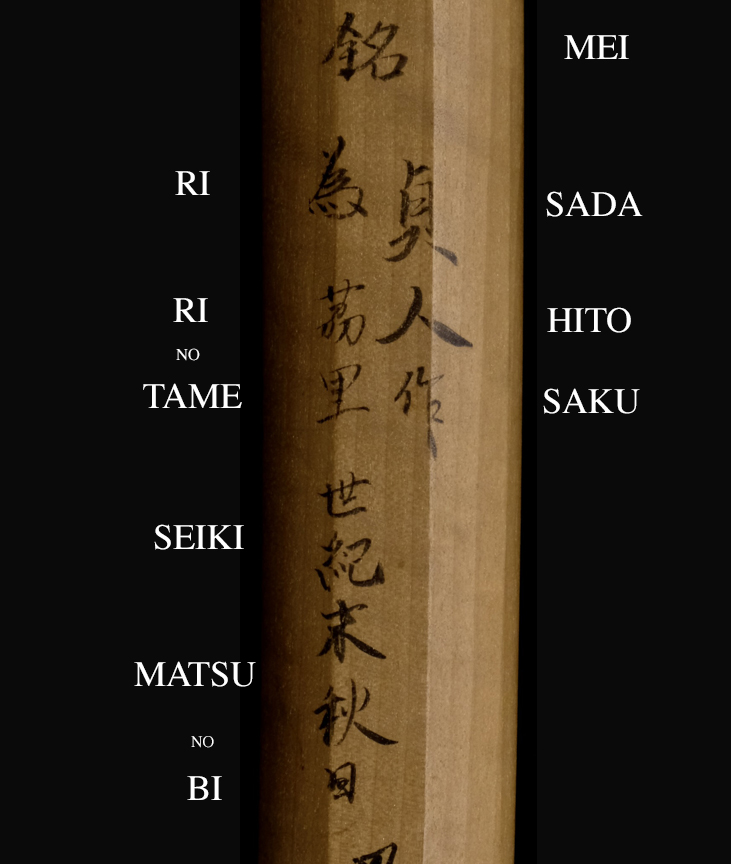 MEI
SADA
HITO
SAKU
銘
貞人作
為茘里世紀末秋日
RI
RI
NO
TAME
SEIKI
MATSU
NO
BI